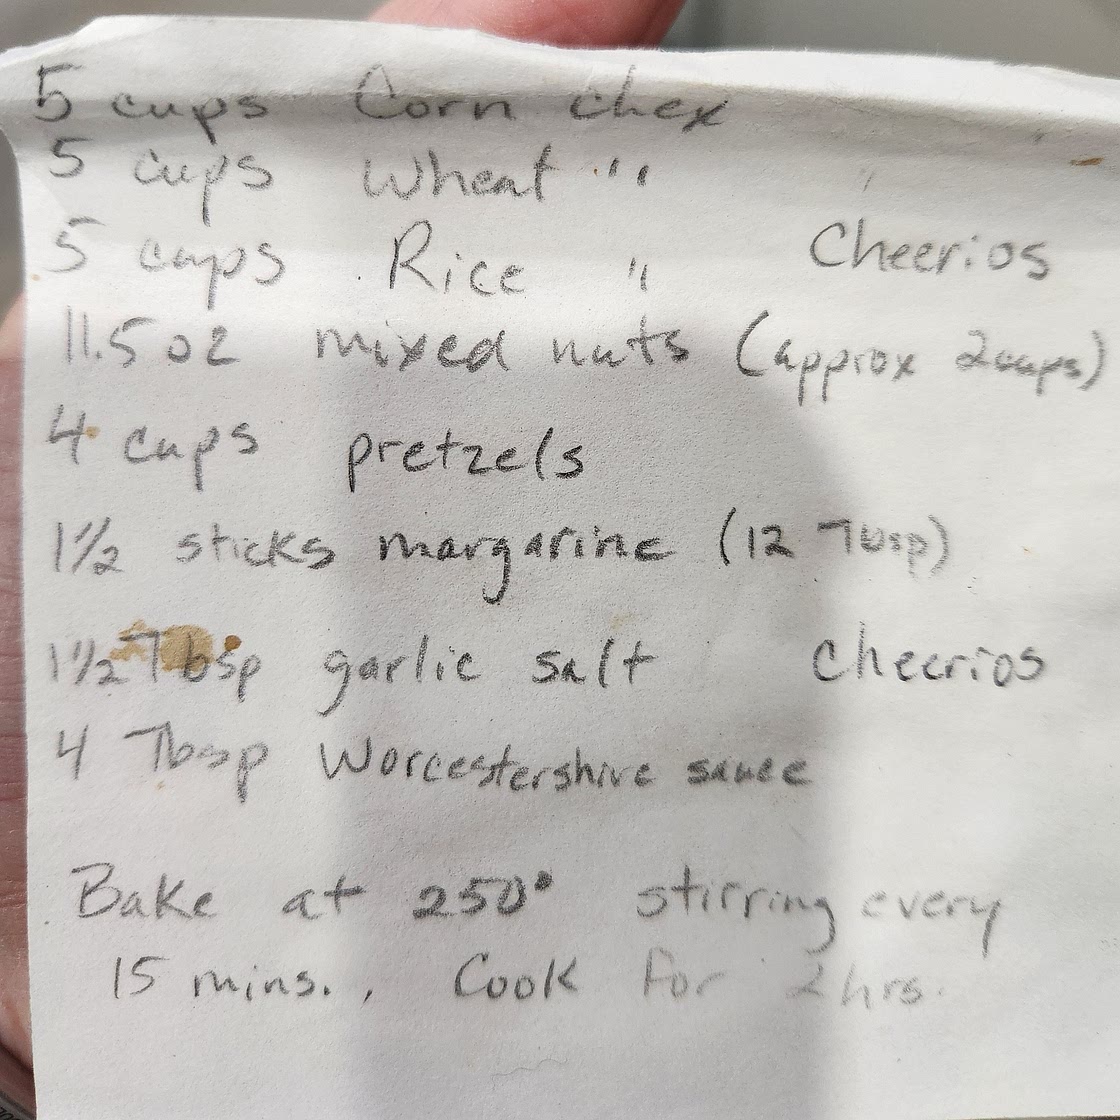 5 cups Corn chex
5 cups Wheat "
5 cups Rice " Cheerios
11.5 oz mixed nuts (approx 2cups)
4 cups pretzels
1½ sticks margarine (12 Tbsp)
1½ Tbsp garlic salt Cheerios
4 Tbsp Worcestershire sauce
Bake at 250° stirring every
15 mins., Cook for 2 hrs.